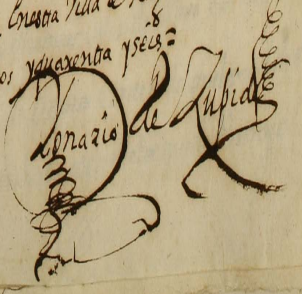 enesta Villa de
os yquarenta yseis =
Ygnazio de Zupide